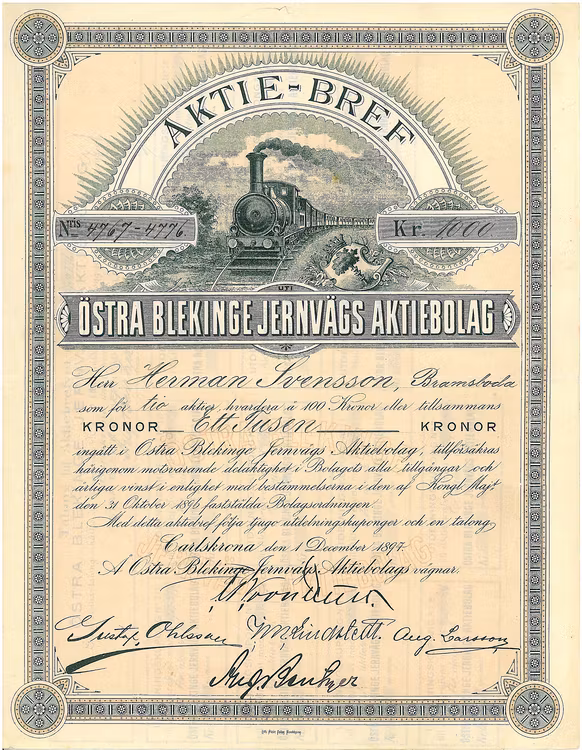 AKTIE-BREF
Nris 4767-4776.
Kr. 1000.
UTI
ÖSTRA BLEKINGE JERNVÄGS AKTIEBOLAG
Herr Herman Svensson, Bramsboda
som för tio aktier, hvardera à 100 Kronor eller tillsammans
KRONOR Ett Tusen KRONOR
ingått i Östra Blekinge Jernvägs Aktiebolag, tillförsäkras
härigenom motsvarande delaktighet i Bolagets alla tillgångar och
årliga vinst i enlighet med bestämmelserna i den af Kongl Maj:t
den 31 Oktober 1896 fastställda Bolagsordningen.
Med detta aktiebref följa tjugo utdelningskuponger och en talong.
Carlskrona den 1 December 1897.
Å Östra Blekinge Jernvägs Aktiebolags vägnar.
Gustaf Ohlsson
Lindstett.
Aug. Larsson